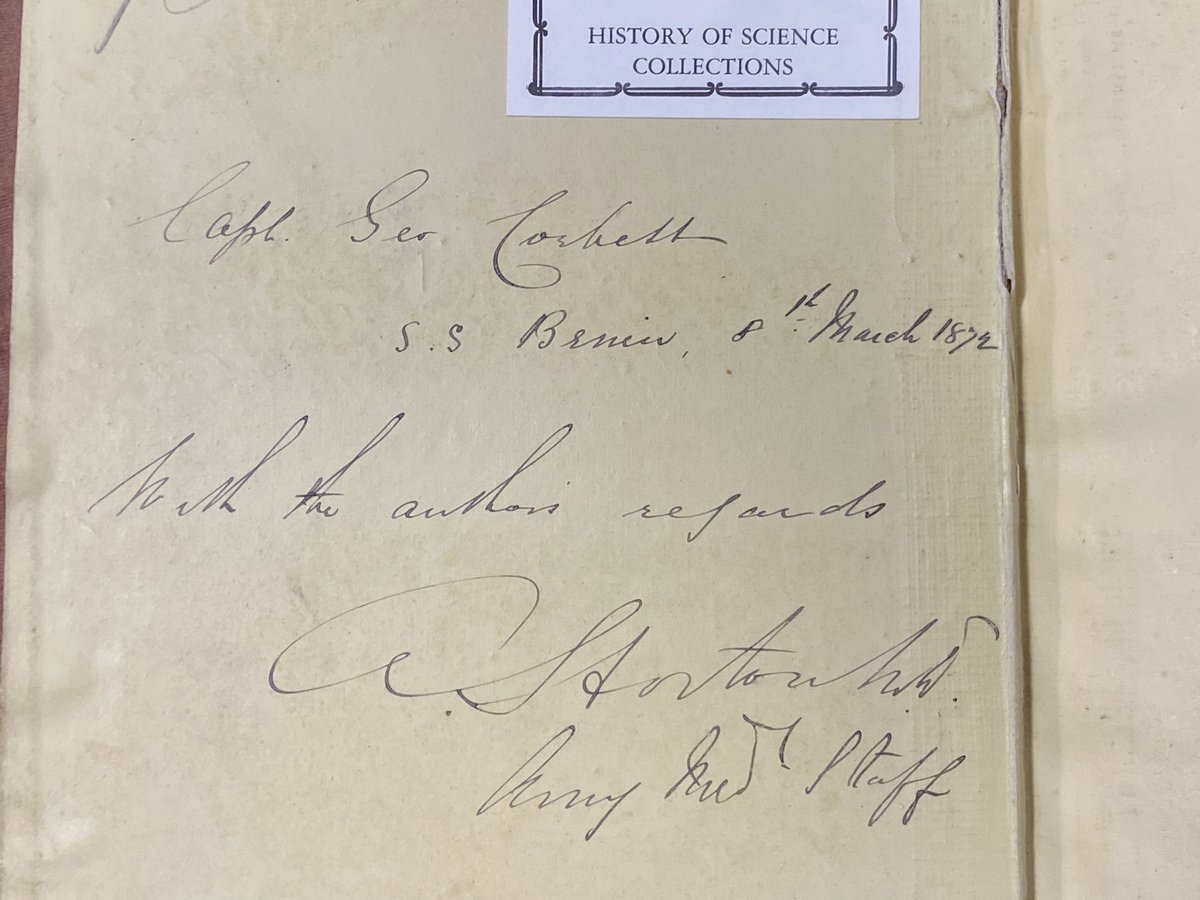 HISTORY OF SCIENCE
COLLECTIONS
Capt. Geo Corbett
S.S Benin, 8th March 1872
With the authors regards
Army Medl Staff